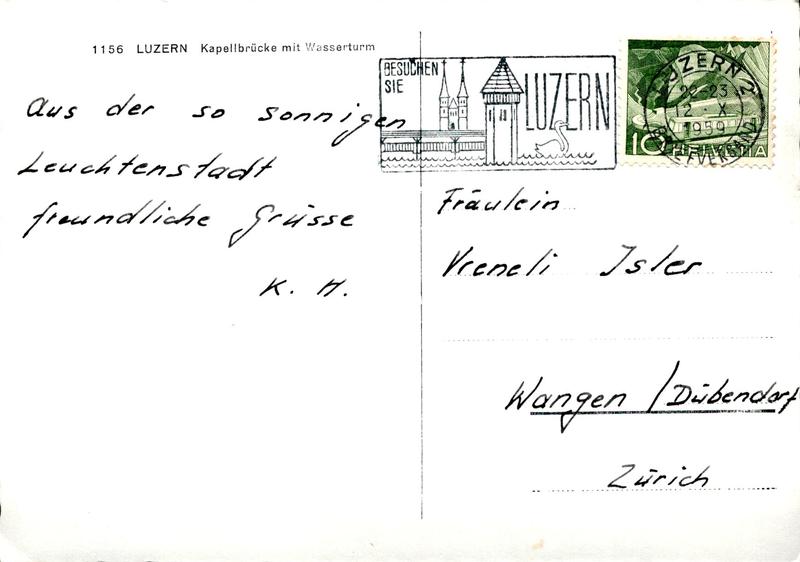 1156 LUZERN Kapellbrücke mit Wasserturm
Aus der so sonnigen
Leuchtenstadt
freundliche Grüsse
K. H.
BESUCHEN
SIE
LUZERN
LUZERN 2
22-23
12. X.
1959
BRIEFVERSAND
10 HELVETIA
Fräulein
Vreneli Isler
Wangen / Dübendorf
Zürich